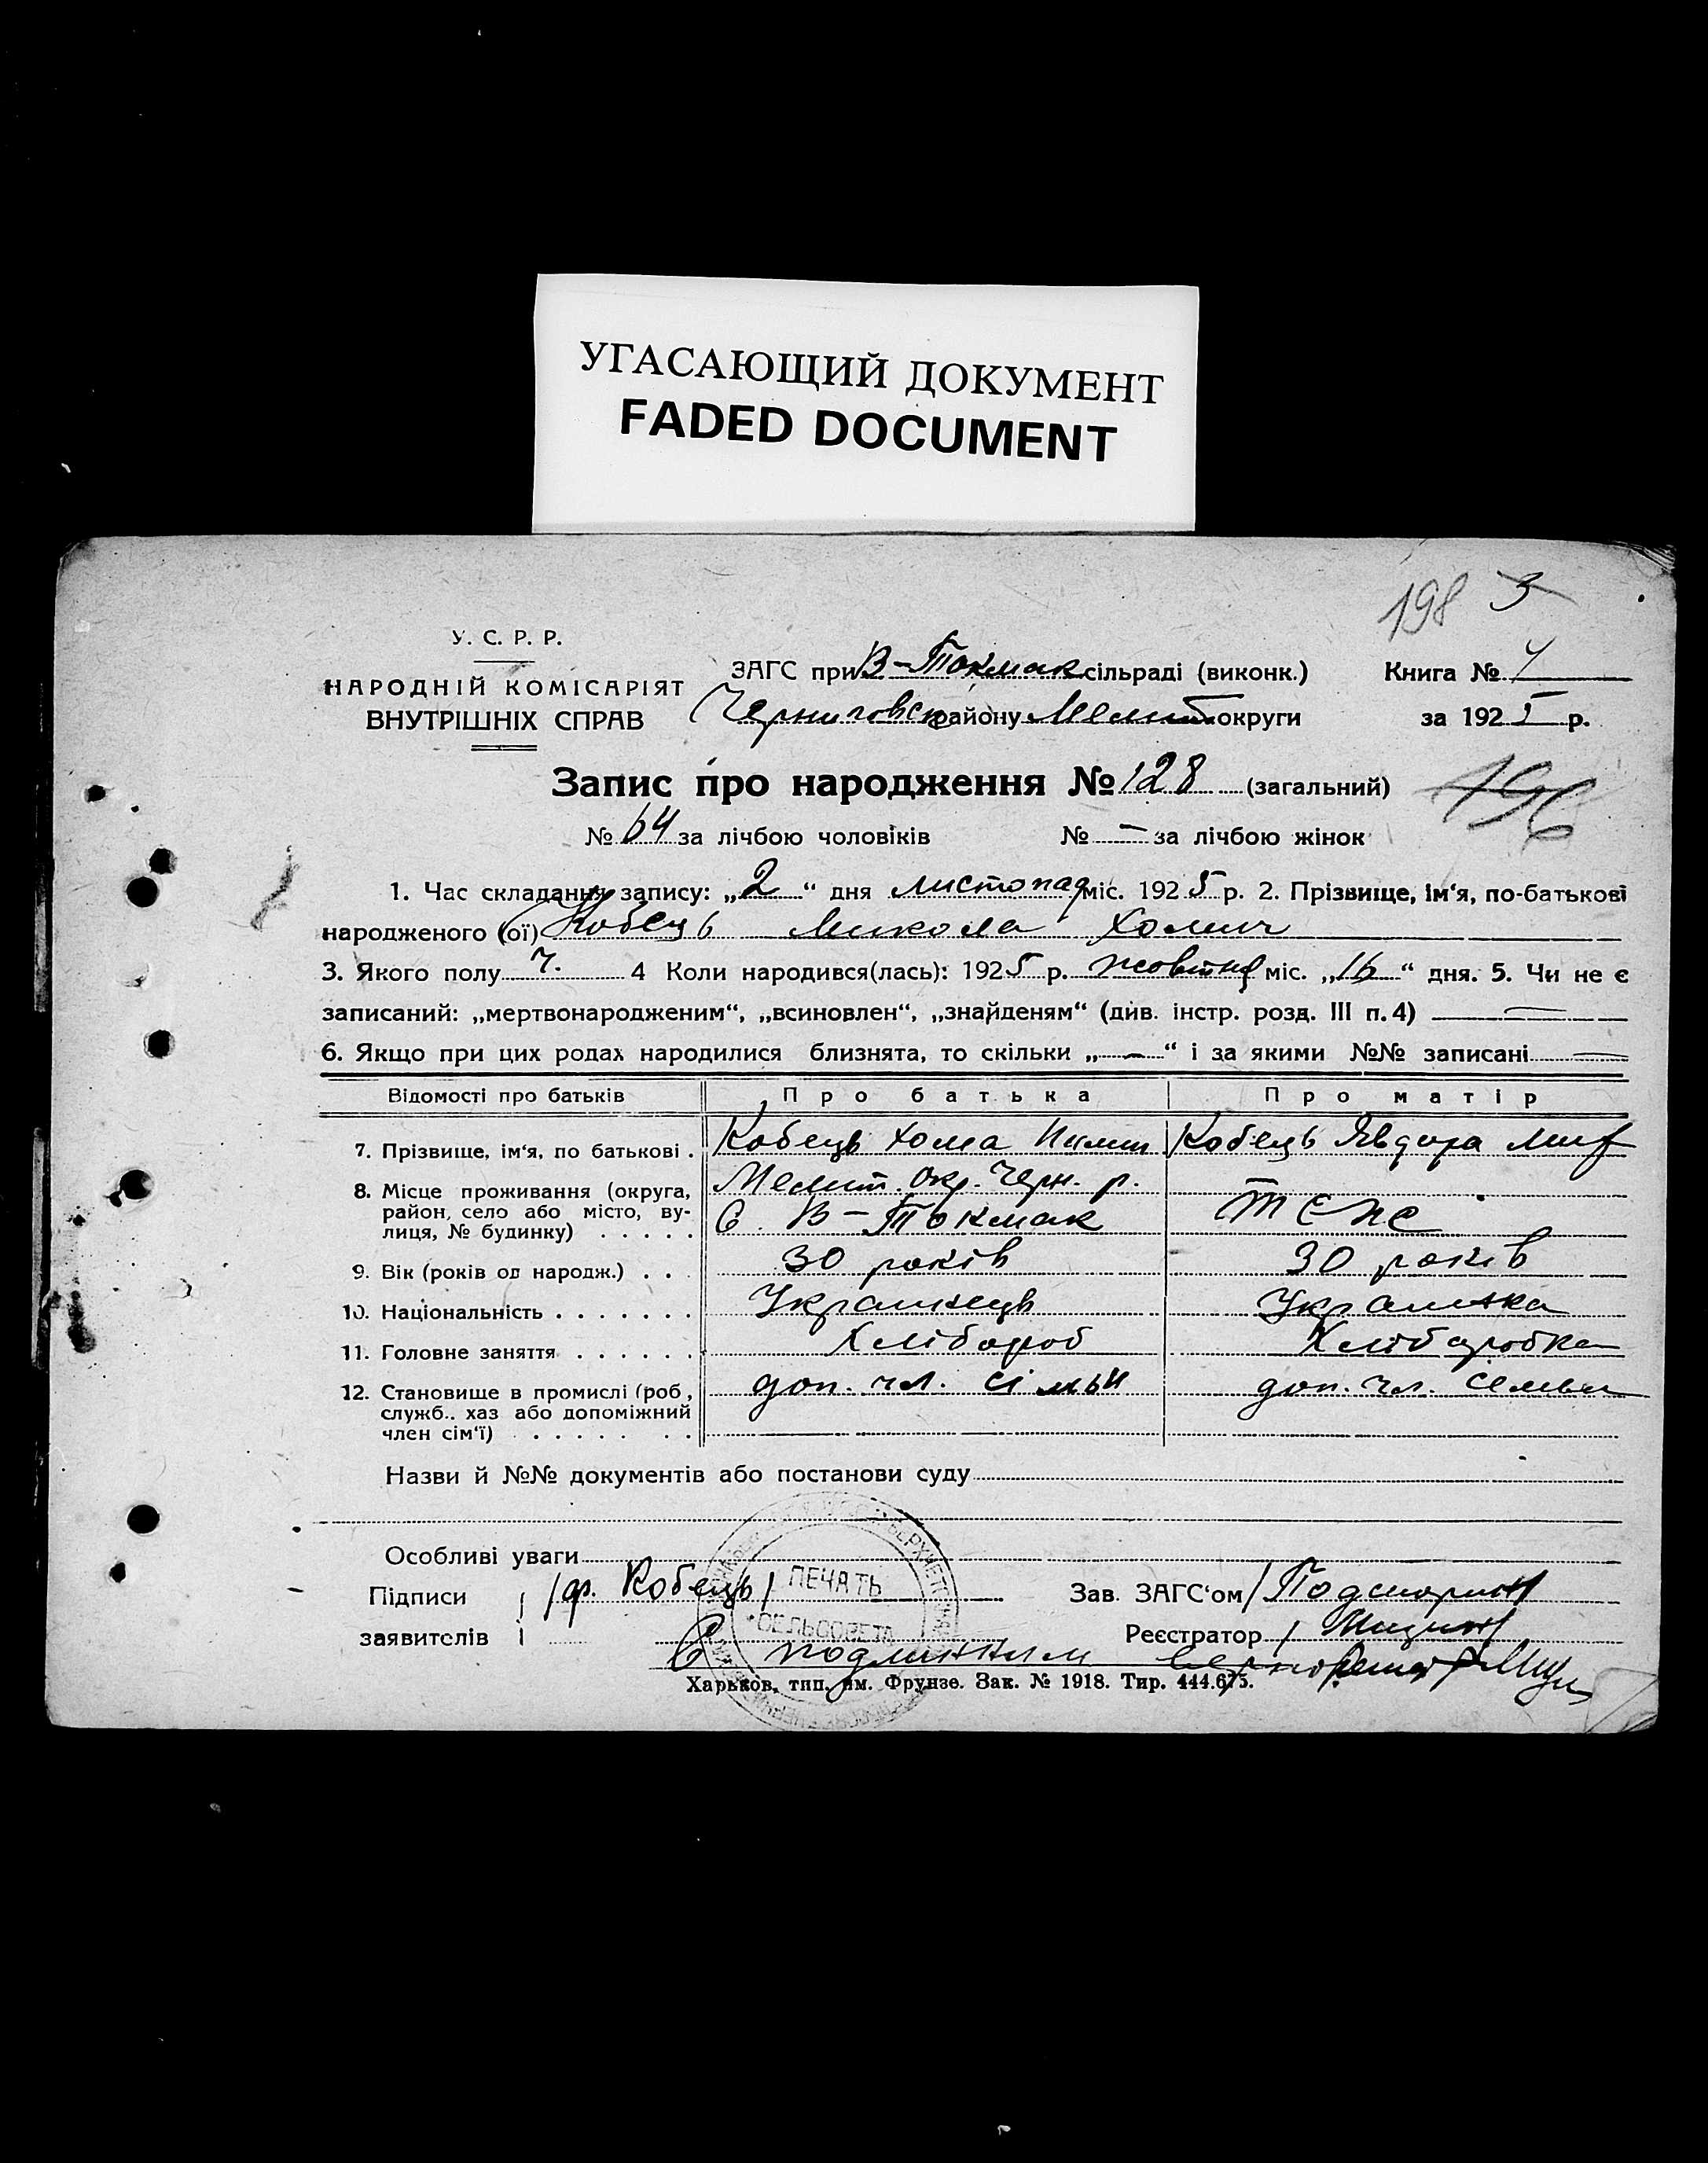 УГАСАЮЩИЙ ДОКУМЕНТ
FADED DOCUMENT
198 3
У. С. Р. Р.
НАРОДНІЙ КОМІСАРІЯТ
ВНУТРІШНІХ СПРАВ
ЗАГС при В-Токмак сільраді (виконк.)
Черниговськ району Мелит округи
Книга №
за 1925 р.
Запис про народження № 128 (загальний)
196
№ 64 за лічбою чоловіків № — за лічбою жінок
1. Час складання запису: „2“ дня листопад міс. 1925 р. 2. Прізвище, ім‘я, по-батькові
народженого (ої) Кобець Микола Хомич
3. Якого полу ч. 4 Коли народився(лась): 1925 р. жовтня міс. „16“ дня. 5. Чи не є
записаний: „мертвонародженим“, „всиновлен“, „знайденям“ (див. інстр. розд. III п. 4) —
6. Якщо при цих родах народилися близнята, то скільки „—“ і за якими №№ записані —
Відомості про батьків Про батька Про матір
7. Прізвище, ім‘я, по батькові . Кобець Хома Кобець Явдоха
8. Місце проживання (округа, район, село або місто, вулиця, № будинку) . . . . .
Мелит. окр. Черн. р.
С. В-Токмак теж
9. Вік (років од народж.) . . . 30 років 30 років
10. Національність . . . . . . . Українець Українка
11. Головне заняття . . . . . . Хлібороб Хліборобка
12. Становище в промислі (роб, служб.. хаз або допоміжний член сім‘ї) . . . . . . . доп. чл. сімьи доп. чл. семьи
Назви й №№ документів або постанови суду
Особливі уваги
Підписи
заявителів
/ф. Кобець/
ПЕЧАТЬ
СЕЛЬСОВЕТА
Зав. ЗАГС‘ом
Реєстратор
С подлинним верно
Харьков, тип. им. Фрунзе. Зак. № 1918. Тир. 444.675.